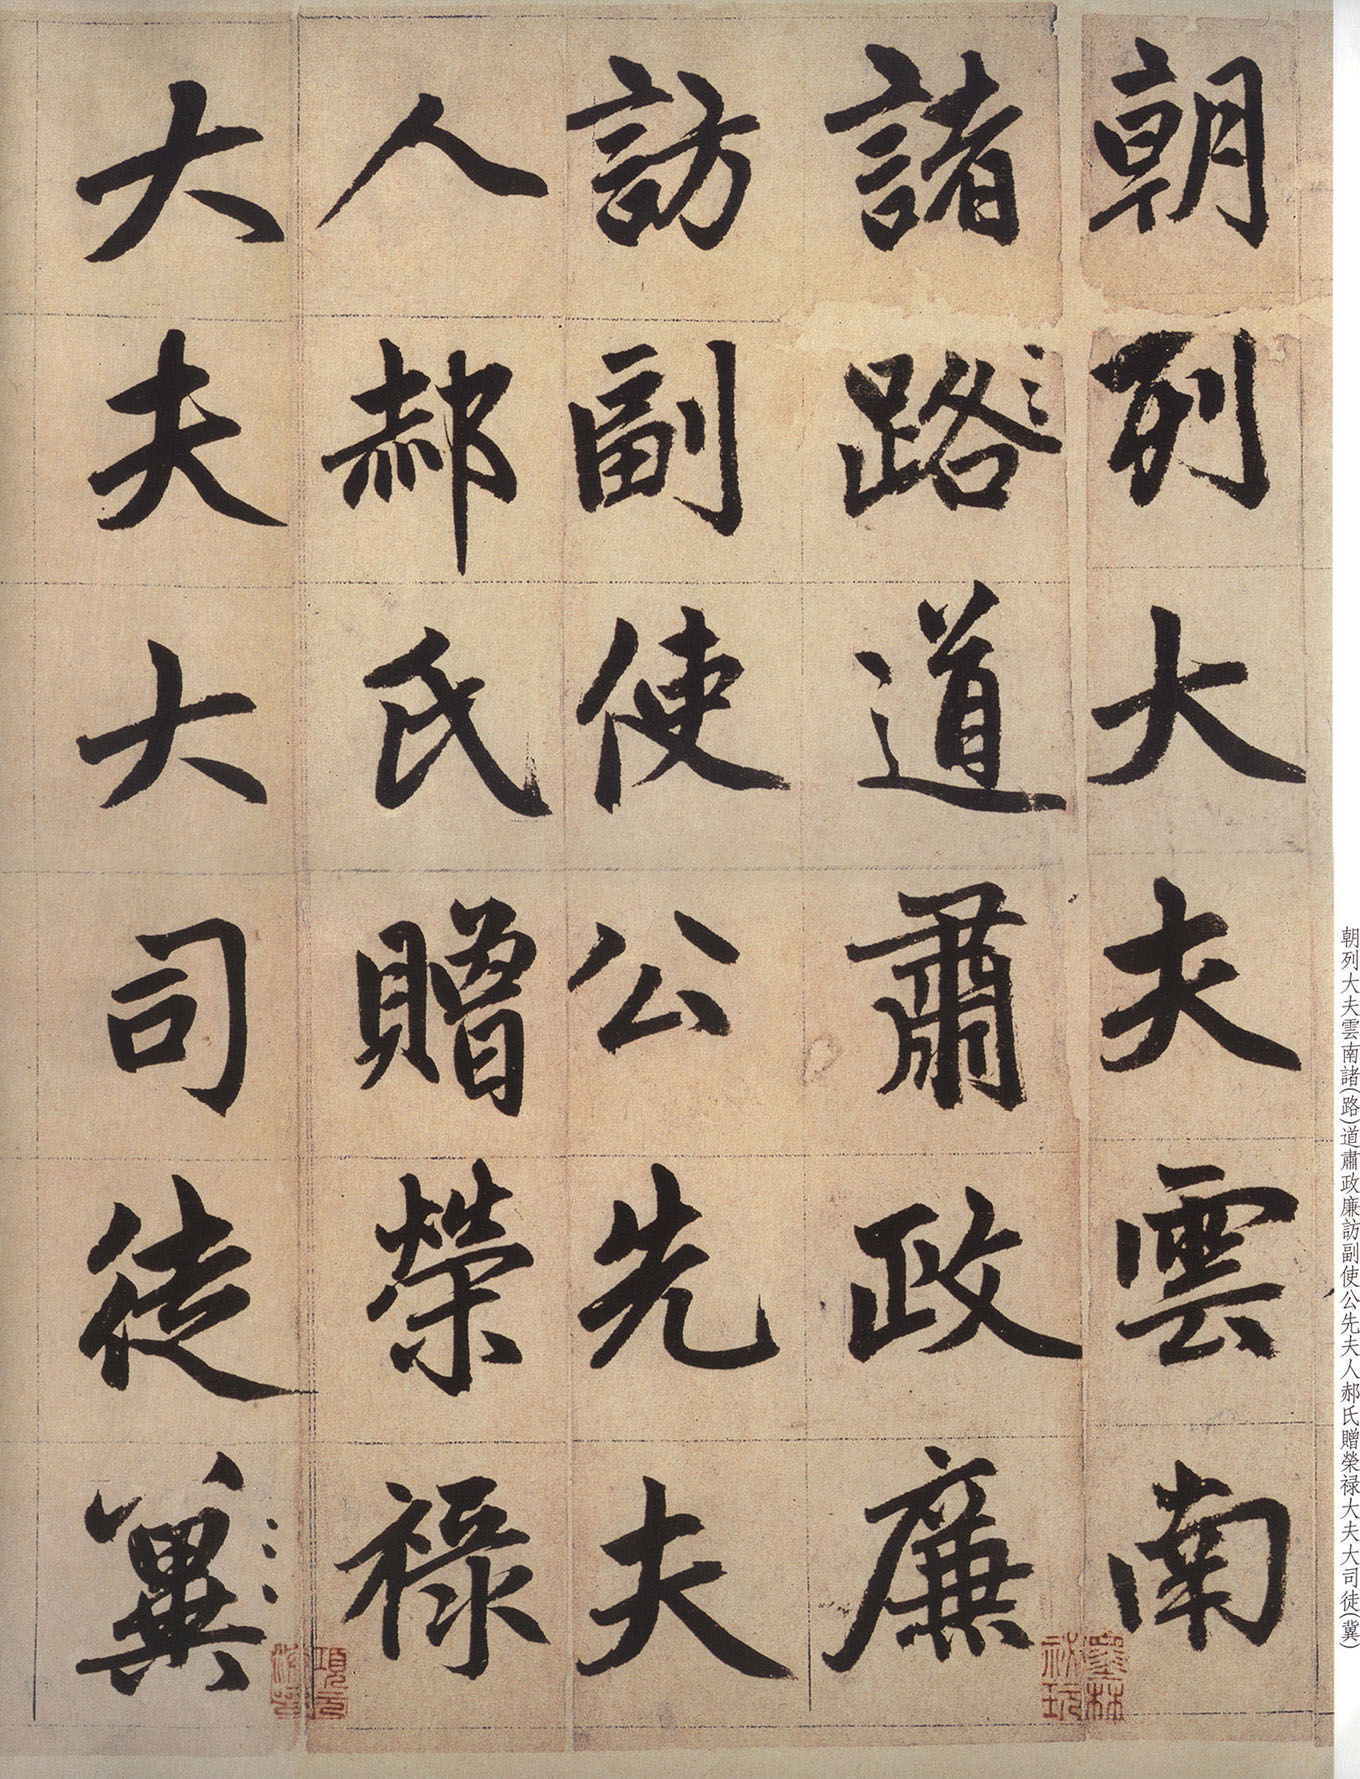 朝列大夫雲南
諸路道肅政廉
訪副使公先夫
人郝氏贈榮禄
大夫大司徒冀
墨林
祕玩
項元
汴印
朝列大夫雲南諸(路)道肅政廉訪副使公先夫人郝氏贈榮禄大夫大司徒(冀)